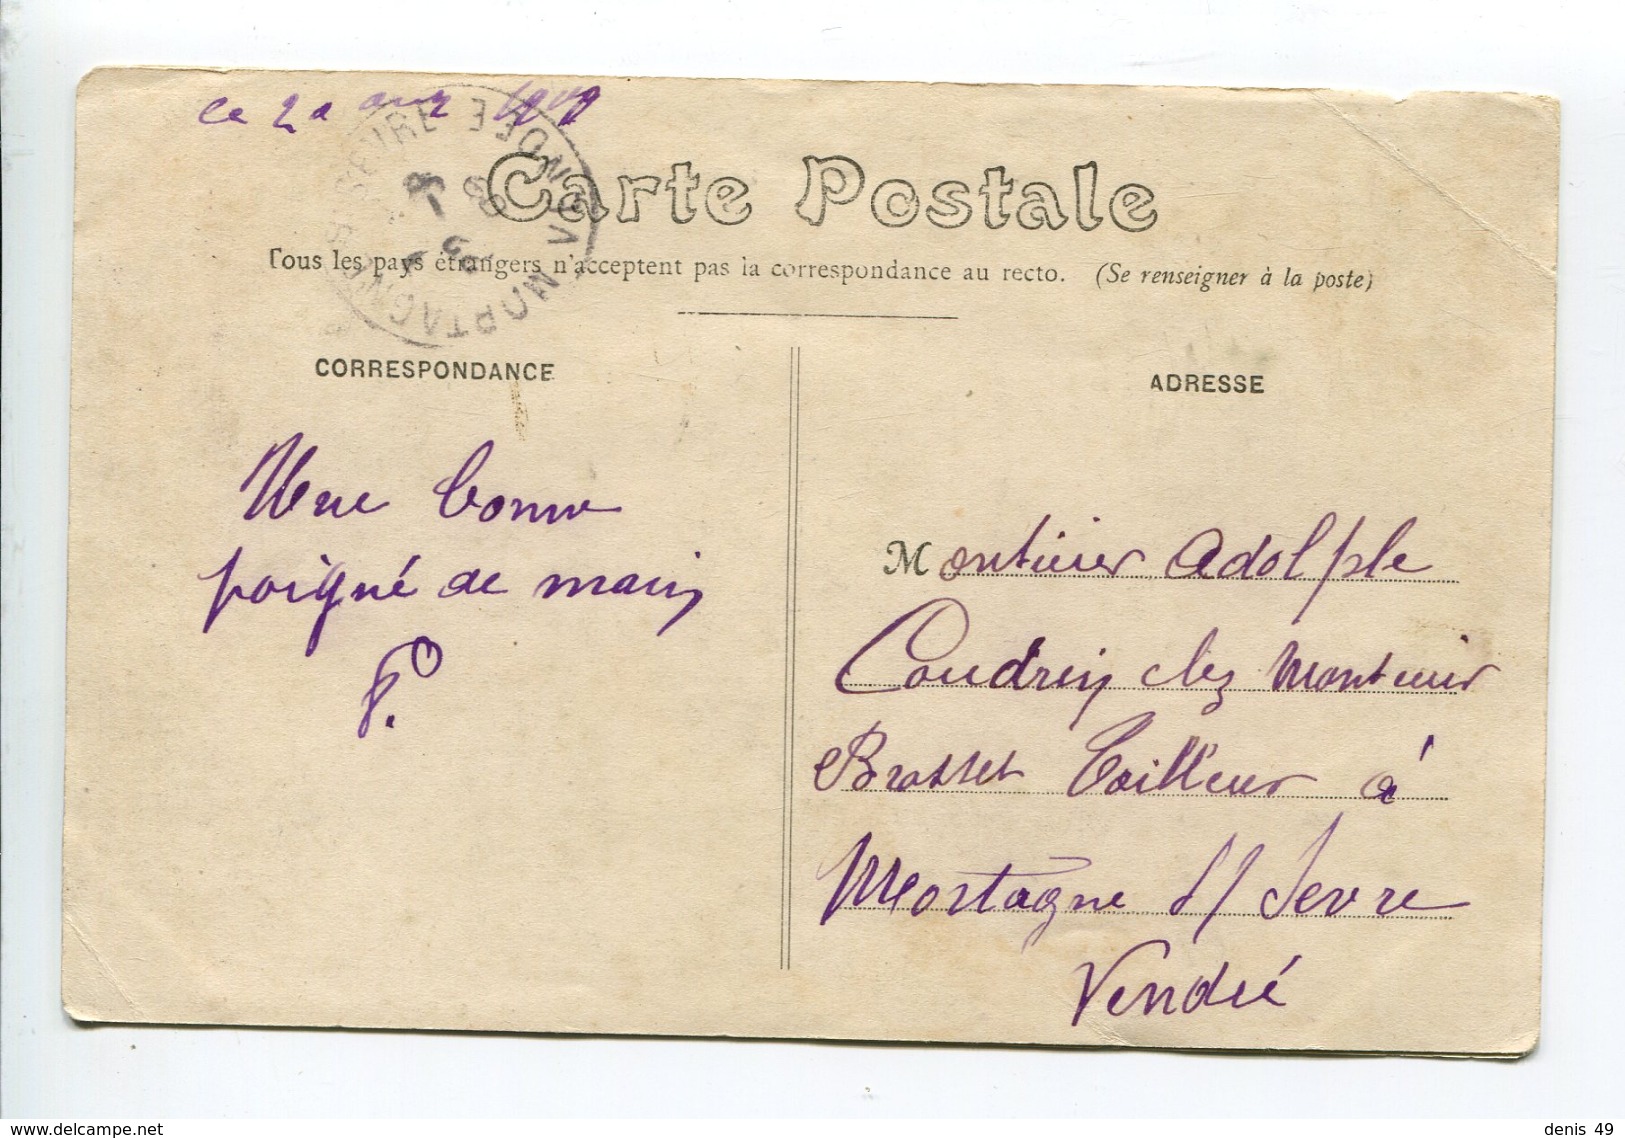 ce 20
Carte Postale
Tous les pays étrangers n'acceptent pas la correspondance au recto. (Se renseigner à la poste)
CORRESPONDANCE
ADRESSE
Une bonne
poigné de main
P.
Montieier Adolphe
Coudrin chez Montieier
Brosset Tailleur à
Mortagne S/ Sevre
Vendeé
MORTAGNE SUR SEVRE VENDEE
www.delcampe.net
denis 49